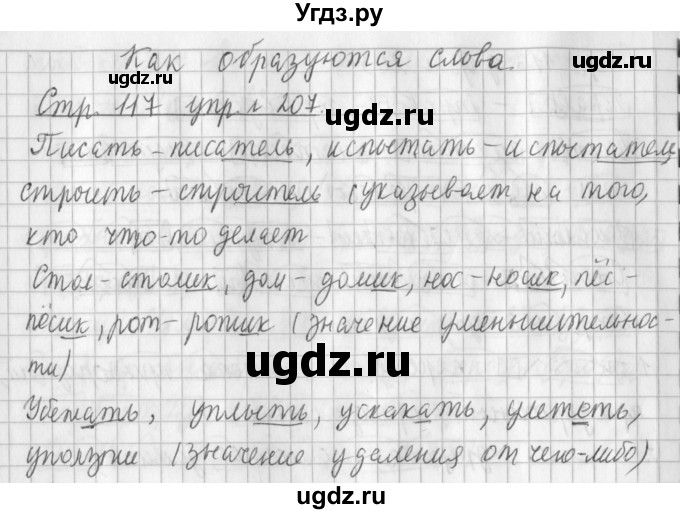 Угдз.ру
Как образуются слова.
ugdz.ru ugdz.ru
Стр. 117 упр. 207.
ugdz.ru
Писать - писатель, испытать - испытатель,
строить - строитель (указывает на того,
ugdz.ru ugdz.ru
кто что-то делает
Стол - столик, дом - домик, нос - носик, пёс -
пёсик, рот - ротик (значение уменьшительнос-
ugdz.ru
ти)
ugdz.ru ugdz.ru
Убежать, уплыть, ускакать, улететь,
уползти (значение удаления от чего-либо)
ugdz.ru